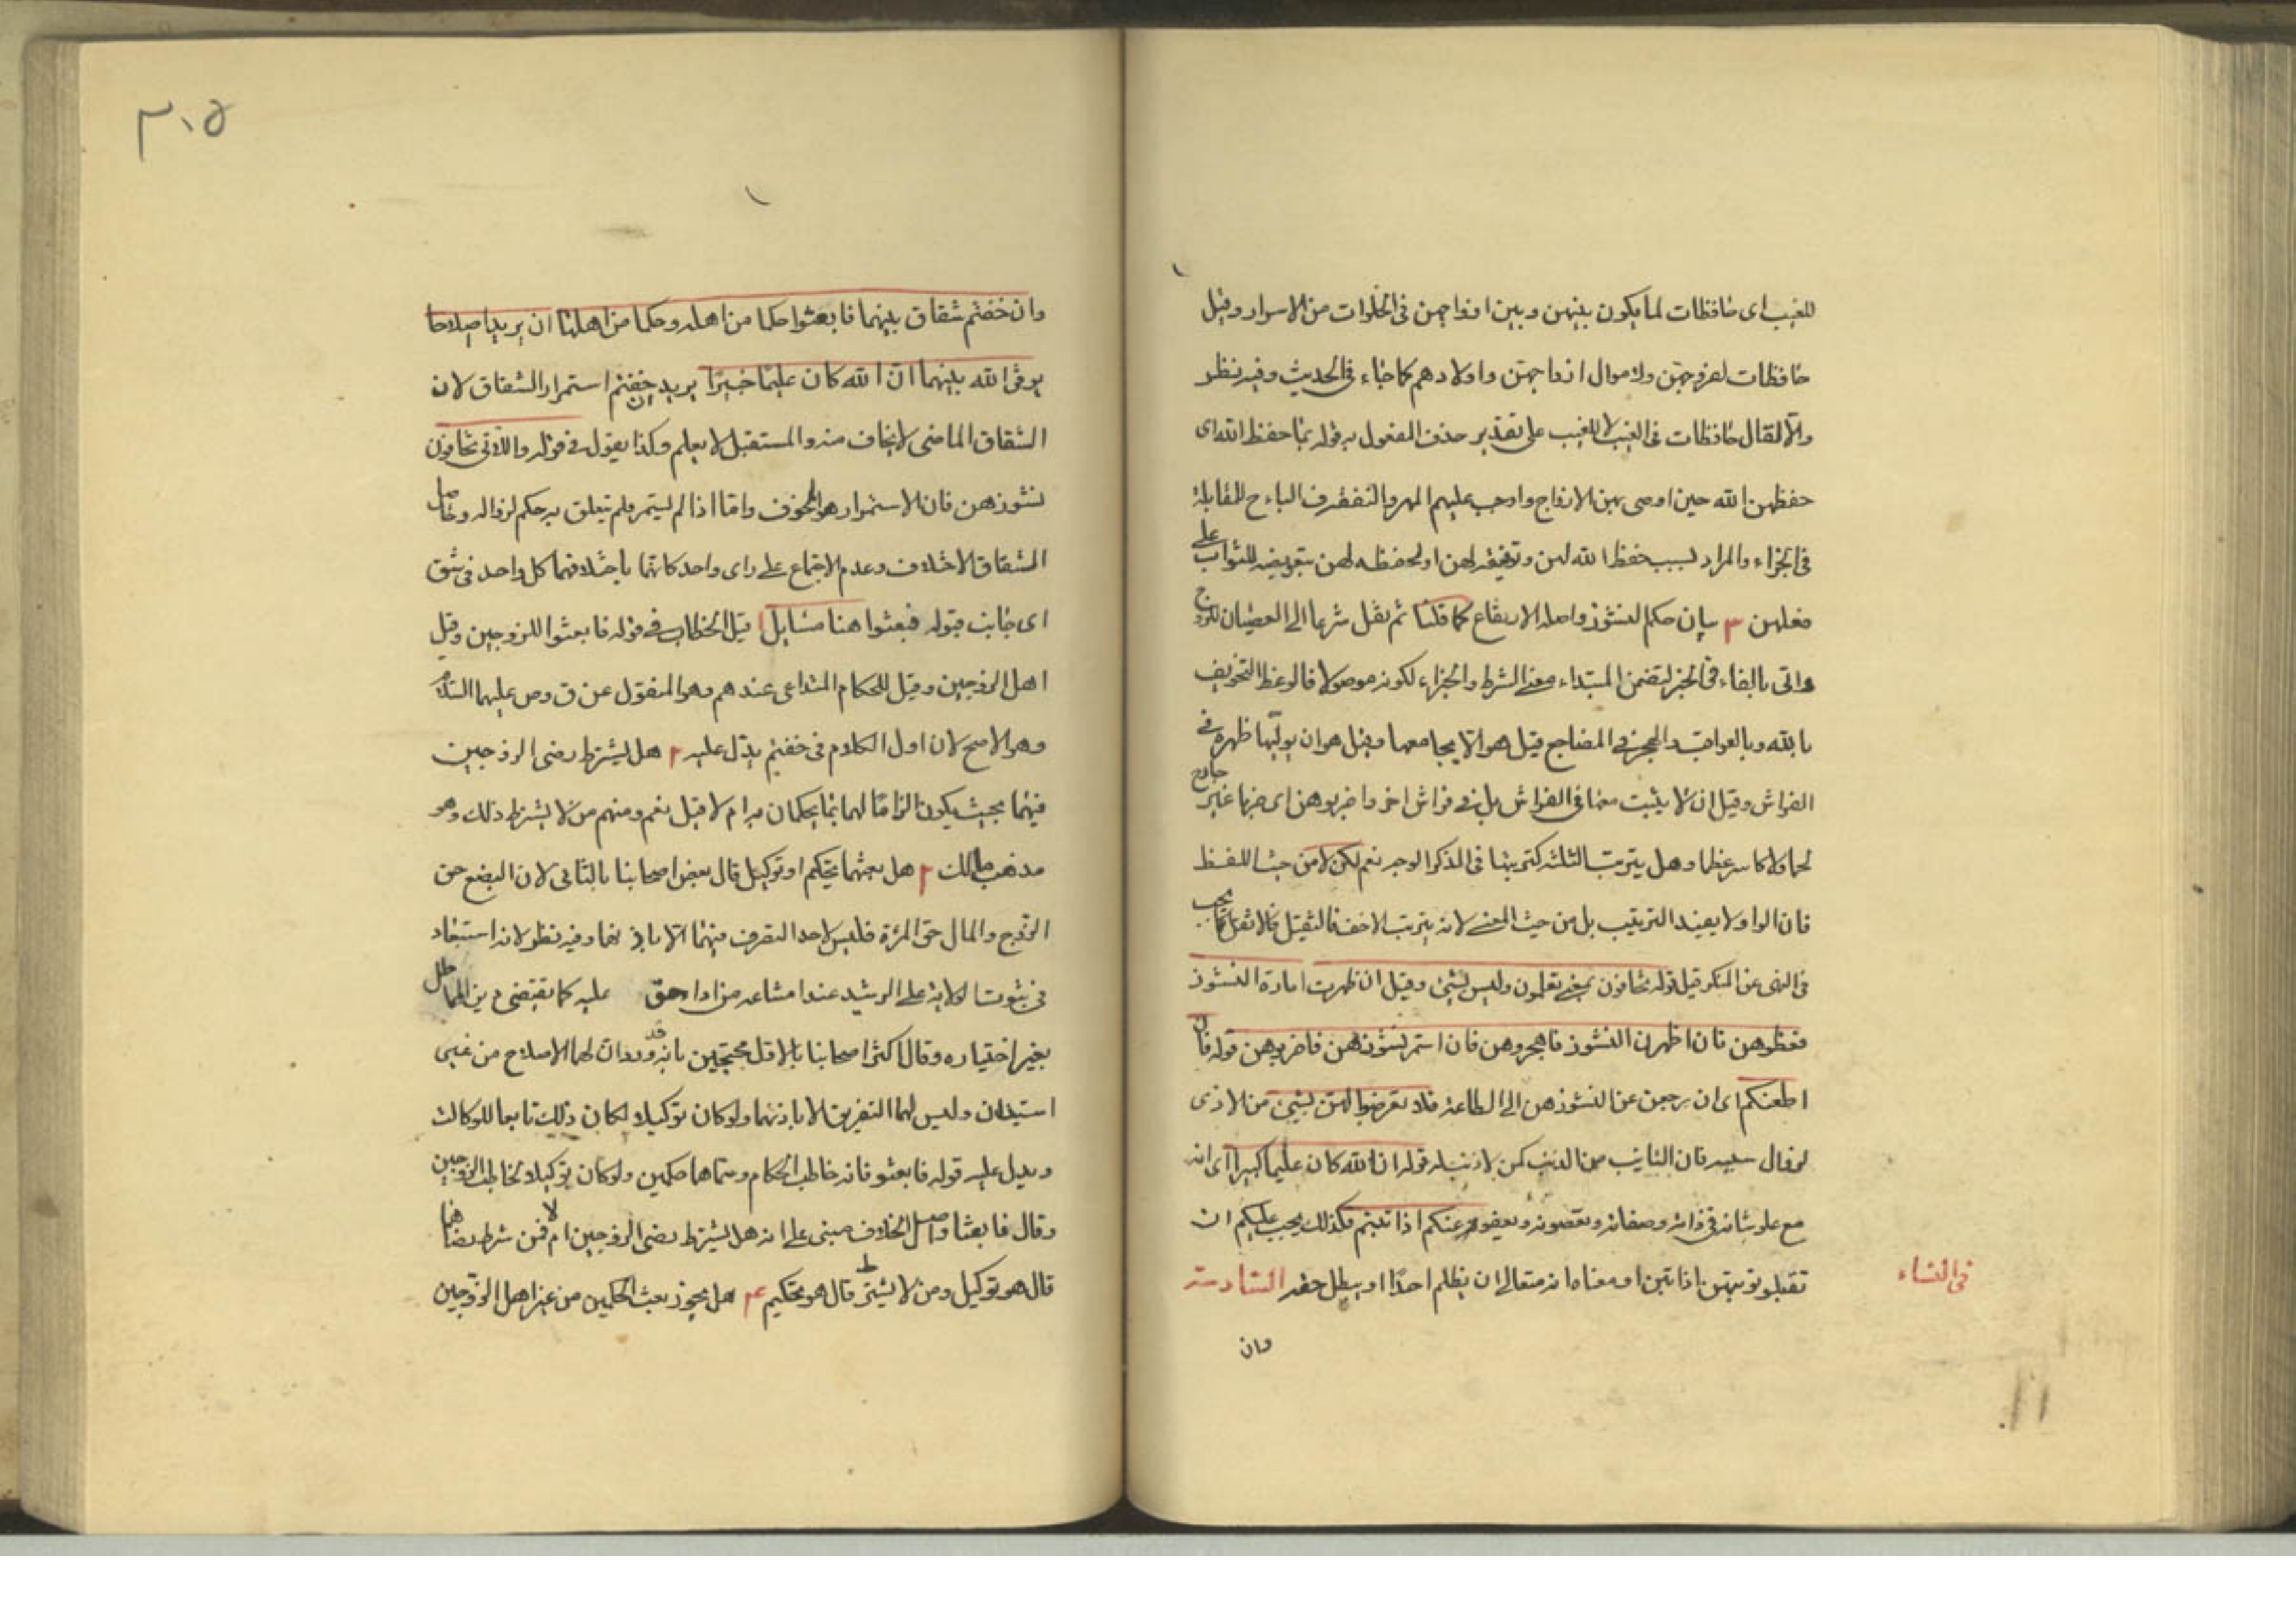 للغيب اى حافظات لما يكون بينهن و بين ازواجهن فى الخلوات من الاسرار وقيل
حافظات لفروجهن ولاموال ازواجهن واولادهم كما جاء فى الحديث وفيه نظر
والا لقال حافظات فى الغيب لا للغيب على تقدير حذف المفعول به قوله بما حفظ الله اى
حفظهن الله حين اوصى بهن الازواج واوجب عليهم المهر والنفقة فالباء ح للمقابلة
فى الجزاء والمراد بسبب حفظ الله لهن وتوفيقه لهن او لحفظه لهن بتعريضه للثواب على
فعلهن ٣ بيان حكم النشوز واصله الارتفاع كما قلنا ثم نقل شرعا الى العصيان للزوج
واتى بالفاء فى الخبر لتضمن المبتداء معنى الشرط والجزاء لكونه موصولا فالوعظ التخويف
بالله وبالعواقب والهجر فى المضاجع قيل هو الا يجامعها وقيل هو ان يوليها ظهره فى
الفراش وقيل ان لا يبيت معها فى الفراش بل فى فراش اخر واضربوهن اى ضربا غير جارح
لحما ولا كاسر عظما وهل يترتب الثلثة كترتبها فى الذكر الوجه نعم لكن لا من حيث اللفظ
فان الواو لا يفيد الترتيب بل من حيث المعنى لانه يترتب الاخف فالثقيل فالاثقل كما يجب
فى النهى عن المنكر قيل قوله تخافون بمعنى تعلمون وليس بشئ وقيل ان ظهرت امارة النشوز
فعظوهن فان اظهرن النشوز فاهجروهن فان استمر نشوزهن فاضربوهن قوله فان
اطعنكم اى ان رجعن عن النشوز هن الى الطاعة فلا تعرضوا لهن بشئ من الاذى
لو قال سبيله فان التائب من الذنب كمن لا ذنب له قوله ان الله كان عليما كبيرا اى انه
مع علو شانه فى ذاته وصفاته وتعصونه ويعفو عنكم اذا تبتم فكذلك يجب عليكم ان
تقبلو توبتهن اذا تبن او معناه انه متعال ان يظلم احدا او يبطل حقه السادسة
فى النساء
وان
٣٠٥
وان خفتم شقاق بينهما فابعثوا حكما من اهله وحكما من اهلها ان يريدا اصلاحا
يوفق الله بينهما ان الله كان عليما خبيرا يريد ان خفتم استمرار الشقاق لان
الشقاق الماضى لا يخاف منه والمستقبل لا يعلم وكذا يقول فى قوله واللاتى تخافون
نشوزهن فان الاستمرار هو المخوف واما اذا لم يستمر فلم يتعلق به حكم لزواله وحاصل
الشقاق الاختلاف وعدم الاجتماع على راى واحد كانهما باختلافهما كل واحد فى شق
اى جانب قوله فبعثوا هنا مسايل ا قيل الخطاب فى قوله فابعثوا للزوجين وقيل
اهل الزوجين وقيل للحكام المتداعى عندهم وهو المنقول عن ق وص عليهما السلام
وهو الاصح لان اول الكلام فى خفتم يدل عليه ٢ هل يشترط رضى الزوجين
فيهما بحيث يكون الزاما لهما بما يحكمان به ام لا قيل نعم ومنهم من لا يشترط ذلك وهو
مذهب مالك ٣ هل بعثهما تحكيم او توكيل قال بعض اصحابنا بالثانى لان البضع حق
الزوج والمال حق المرئة فليس لاحد التصرف فيهما الا باذنهما وفيه نظر لانه استبعاد
فى ثبوت الولاية على الرشيد عند امتناعه من اداء حق عليه كما تقتضى دين المماطل
بغير اختياره وقال اكثر اصحابنا بالاول محتجين بانه قد ورد ان لهما الاصلاح من غير
استيذان وليس لهما التفريق الا باذنهما ولو كان توكيلا لكان ذلك تابعا للوكالة
ويدل عليه قوله فابعثو فانه خاطب الحكام وسماهما حكمين ولو كان توكيلا لخاطب الزوجين
وقال فابعثا واصل الخلاف مبنى على انه هل يشترط رضى الزوجين ام لا فمن شرط رضاهما
قال هو توكيل ومن لا يشترط قال هو تحكيم ٤ هل يجوز بعث الحكمين من غير اهل الزوجين